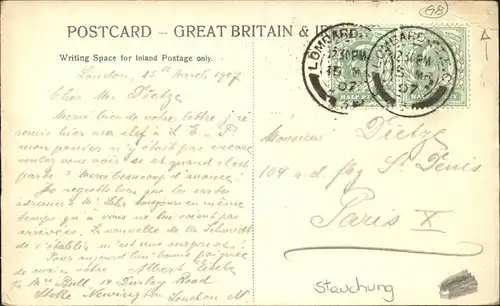 GB
POSTCARD – GREAT BRITAIN &
Writing Space for Inland Postage only.
LOMBARD
LOMBARD
30 PM
30 PM
15 MR
07
07
HALF
London, 15th March 1907
Cher Mr Dietze
Merci bien de votre lettre, j'ai
remis hier ma clef à
mon panier n'y était pas encore
voulez vous voir si et quand il est
parti? Merci beaucoup d'avance!
Je regrette bien que les cartes
adressées à Mr toujours en même
temps qu'à vous ne lui soient pas
arrivées. La nouvelle de Mr Schmidt
de s'établir m'est une surprise!
Pour aujourd'hui bonne poignée
de main votre Albert
c/o Mrs Bull, Durley Road
Stoke Newington London N.
Monsieur Dietze
104 r d fbg St Denis
Paris X
Stauchung